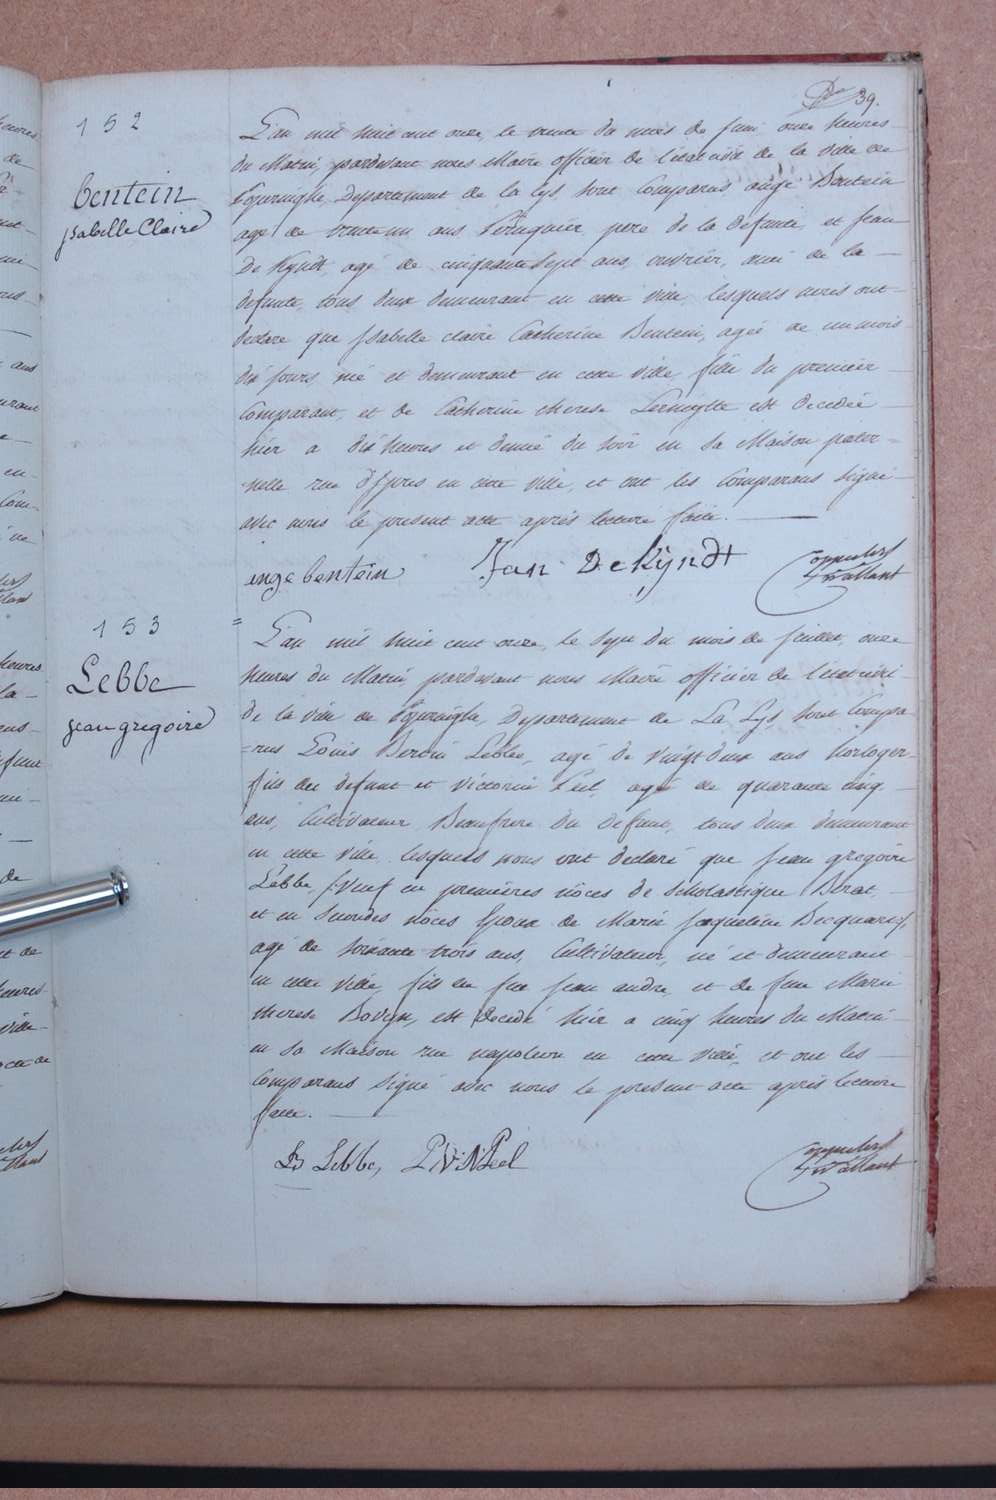 39.
152
bentein
isabelle Claire
L'an mil huit cent onze, le trente du mois de juin onze heures
du Matin, pardevant nous Maire officier de l'etat civil de la ville de
Poperinghe, Departement de la Lys, sont Comparus ange Bentein
agé de trente un ans Perruquier, pere de la defunte, et jean
De Kyndt, agé de cinquante sept ans, ouvrier, ami de la
defunte, tous deux demeurant en cette ville, lesquels nous ont
declare que Isabelle claire Catherine Bentein, agée de un mois
dix jours, né et demeurant en cette ville, fille du premier
Comparant, et de Catherine therese est decedée
hier a dix heures et demie du soir en sa Maison pater=
nelle rue d'Ypres en cette ville, et ont les Comparans signé
avec nous le present acte après lecture faite.
ange bentein Jan DeKyndt
153
Lebbe
jean gregoire
L'an mil huit cent onze, le sept du mois de juillet, onze
heures du Matin, pardevant nous Maire officier de l'etat civil
de la ville de Poperinghe, Departement de La Lys, sont Compa
=rus Louis Lebbe, agé de vingt deux ans horloger
fils du defunt et victorin Peel, agé de quarante cinq
ans, Cultivateur Beaufrere du defunt, tous deux demeurant
en cette ville, lesquels nous ont declaré que jean gregoire
Lebbe, Veuf en premières nôces de Scholastique Berat,
et en secondes nôces Epoux de Marie jacqueline Becquart,
agé de soixante trois ans, Cultivateur, né et demeurant
en cette ville, fils de feu jean andre, et de feue Marie
therese Bovyn, est decedé hier a cinq heures du Matin
en sa Maison rue napoleon en cette ville, et ont les
Comparans signé avec nous le present acte après lecture
faite.
Lebbe, P V: N Peel